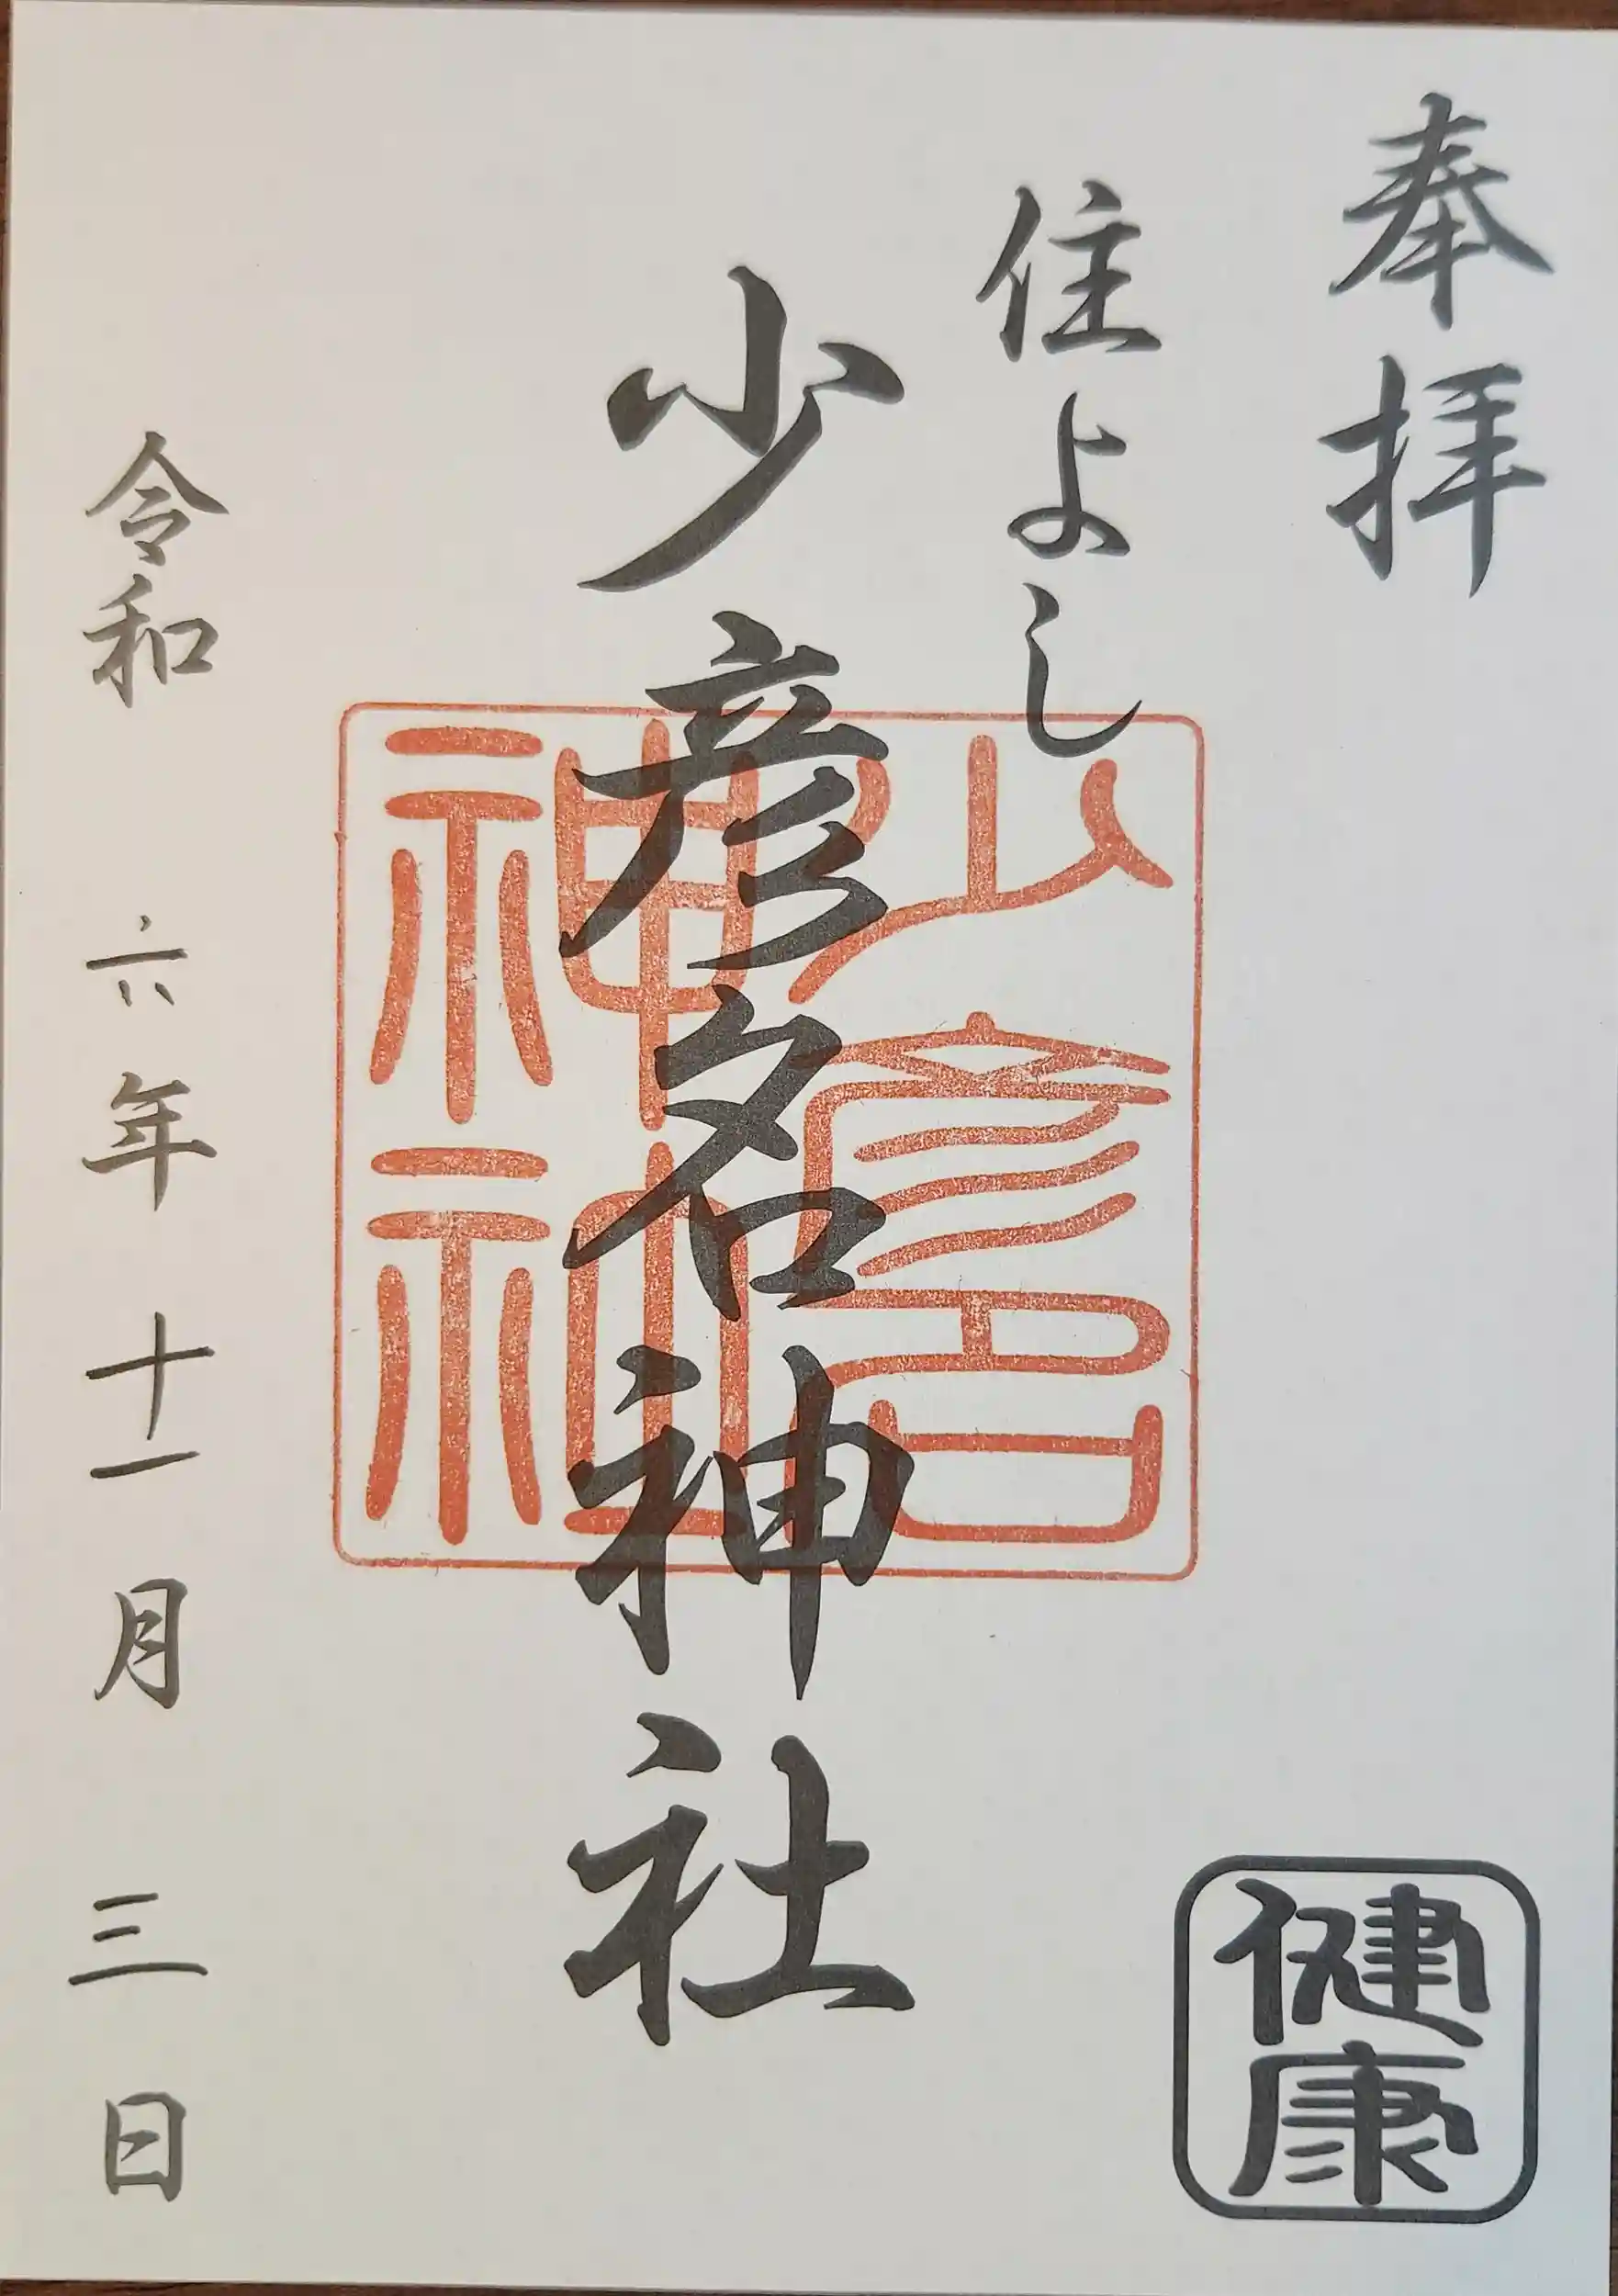 奉拝
住よし
少彦名神社
少彦名
神社
健康
令和六年十一月三日